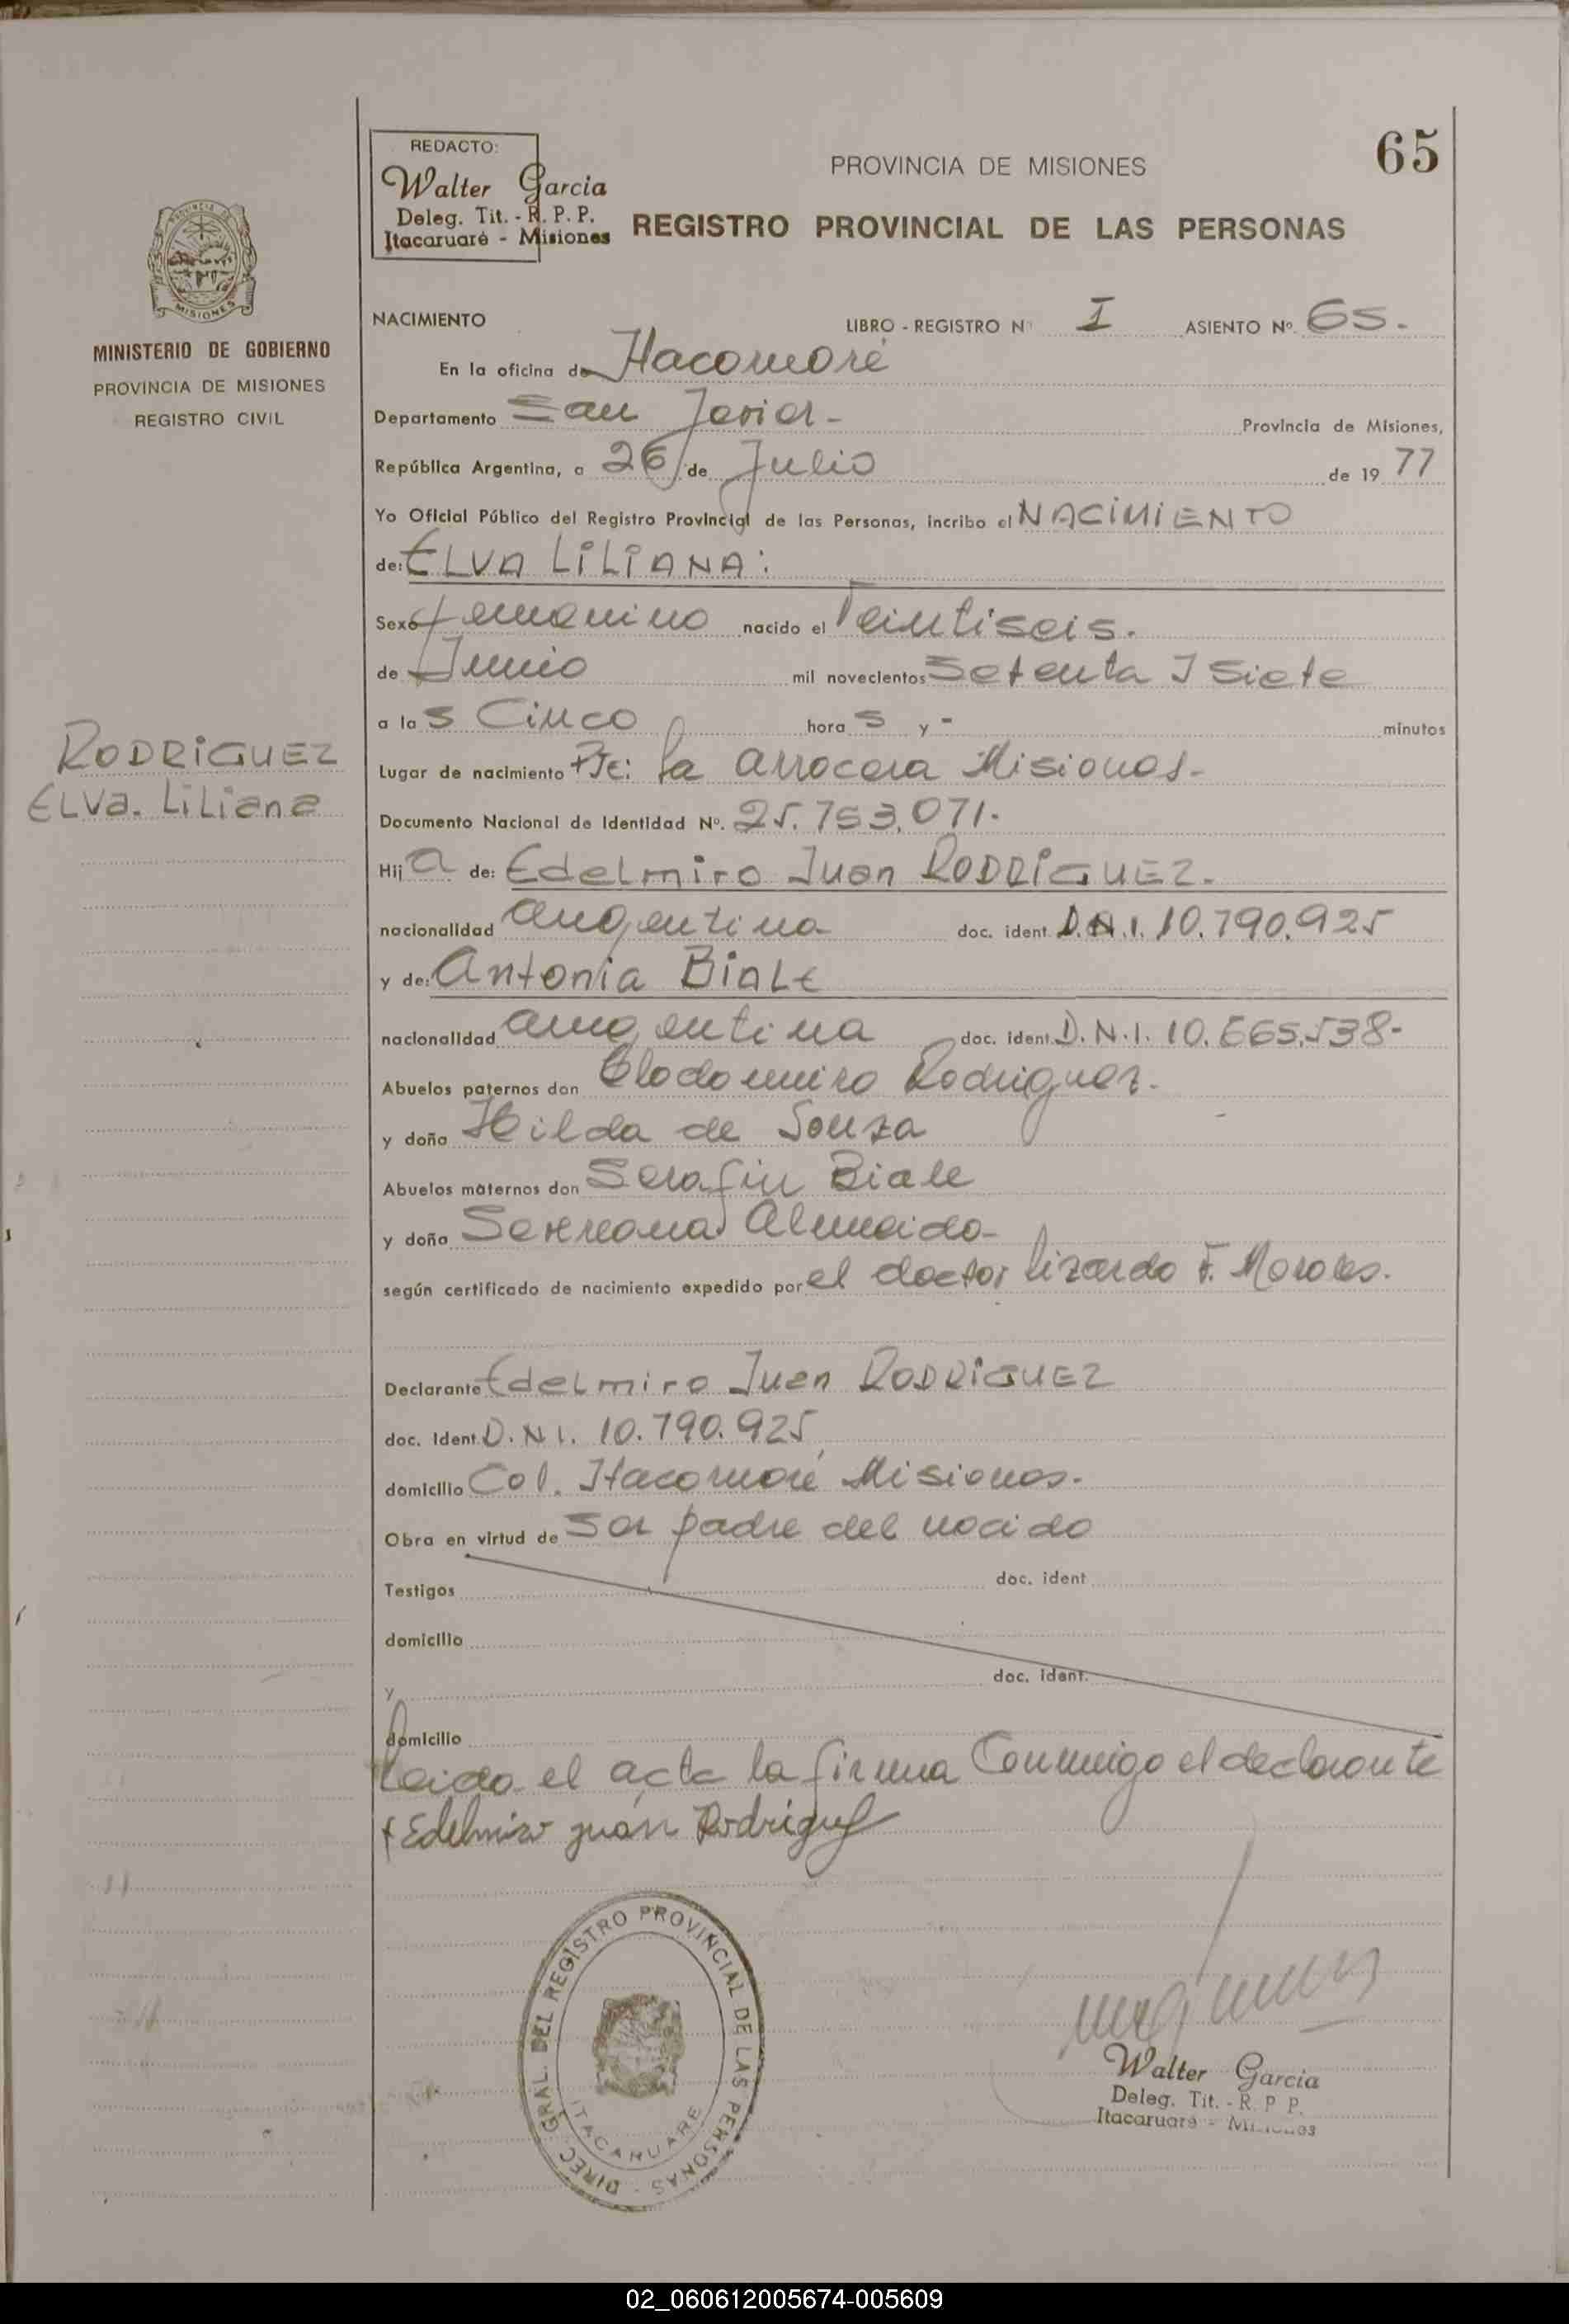 65
REDACTO:
Walter Garcia
Deleg. Tit. - R. P. P.
Itacaruaré - Misiones
PROVINCIA DE MISIONES
REGISTRO PROVINCIAL DE LAS PERSONAS
MISIONES
MINISTERIO DE GOBIERNO
PROVINCIA DE MISIONES
REGISTRO CIVIL
NACIMIENTO
LIBRO - REGISTRO N° I ASIENTO Nº 65.
En la oficina de
Departamento San Javier - Provincia de Misiones,
República Argentina, a 26 de Julio de 19 77
Yo Oficial Público del Registro Provincial de las Personas, incribo el NACIMIENTO
de: ELVA LILIANA:
Sexo femenino nacido el Veintiseis.
de Junio mil novecientos Setenta I Siete
a las Cinco horas y - minutos
RODRIGUEZ
ELVA. LILIANA
Lugar de nacimiento la arrocera Misiones-
Documento Nacional de Identidad Nº. 25.753.071.
Hija de: Edelmiro Juan RODRIGUEZ.
nacionalidad argentina doc. ident D.N.I. 10.790.925
y de: Antonia BiALE
nacionalidad argentina doc. ident. D.N.I. 10.665.538-
Abuelos paternos don Clodomiro Rodriguez.
y doña Hilda de Souza
Abuelos maternos don Serafin Biale
y doña Almeida-
según certificado de nacimiento expedido por el doctor Lizardo F. Morales.
Declarante Edelmiro Juan RODRIGUEZ
doc. Ident. D.N.I. 10.790.925
domicilio Col. Misiones.
Obra en virtud de Ser padre del nacido
Testigos doc. ident
domicilio
y doc. ident.
domicilio
Leida el acta la firma Conmigo el declarante
Edelmiro Juán Rodriguez
DIREC. GRAL. DEL REGISTRO PROVINCIAL DE LAS PERSONAS -
ITACARUARE
Walter Garcia
Deleg. Tit. - R. P P.
Itacaruaré - Misiones
02_060612005674-005609